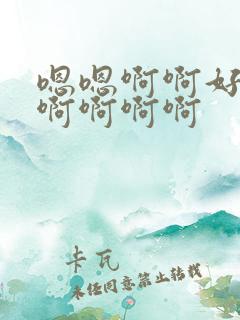 嗯嗯啊啊好
啊啊啊啊
卡瓦
未经同意禁止转载